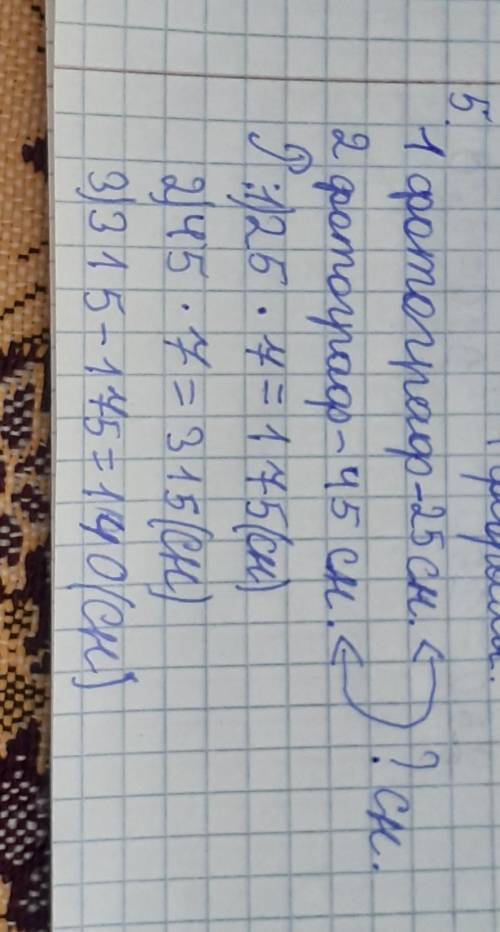 5.
1 фотограф-25сн.
? сн.
2 фотограф-45сн.
Р:1)25·7=175(сн)
2)45·7=315(сн)
3)315-175=140(сн)